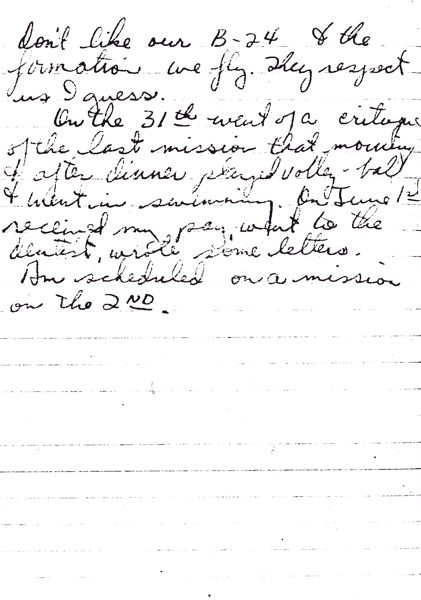 don't like our B-24 & the
formation we fly. They respect
us I guess.
On the 31th went of a critique
of the last mission that morning
& after dinner played volley-bal
& went in swimming. On June 1st
received my pay, went to the
dentist, wrote some letters.
Am scheduled on a mission
on the 2ND.